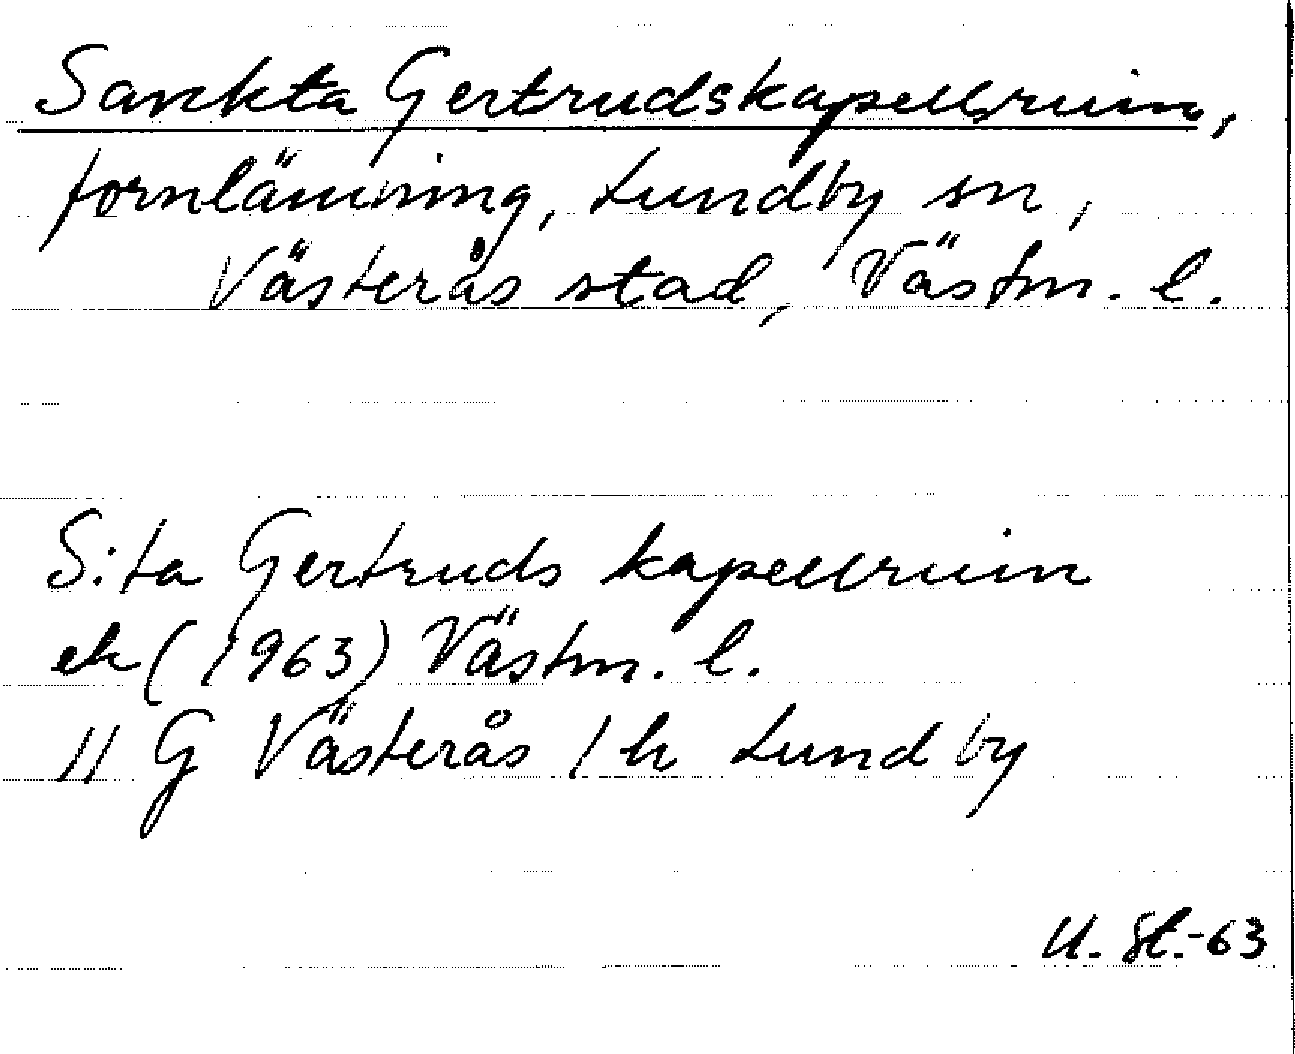 Sankta Gertrudskapellruin,
fornlämning, Lundby sn,
Västerås stad, Västm. l.
S:ta Gertruds kapellruin
ek (1963) Västm. l.
11 G Västerås 1 h Lundby
U. St.-63